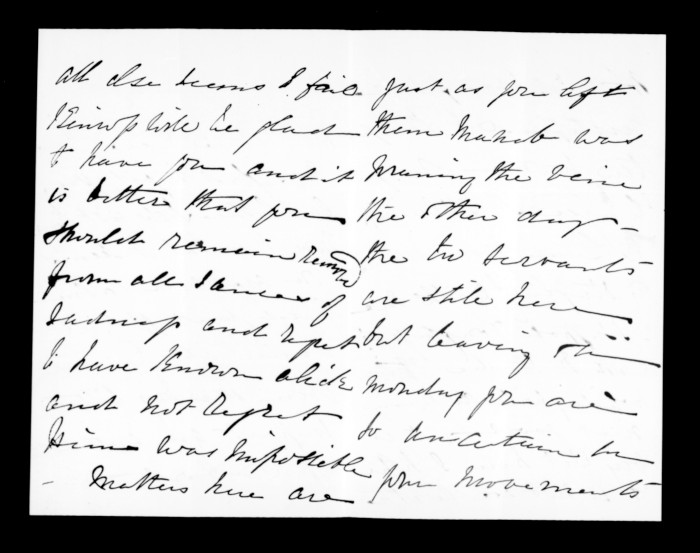 all else seems I fail
will be glad
to have you and it
is better that you
should remain removed
from all sources of
sadness and regret
to have known Alick
and not regret
him was impossible
— Matters here are
just as you left
them was
pruning the vine
the other day —
the two servants
are still here
but leaving on
Monday you are
so uncertain in
your movements